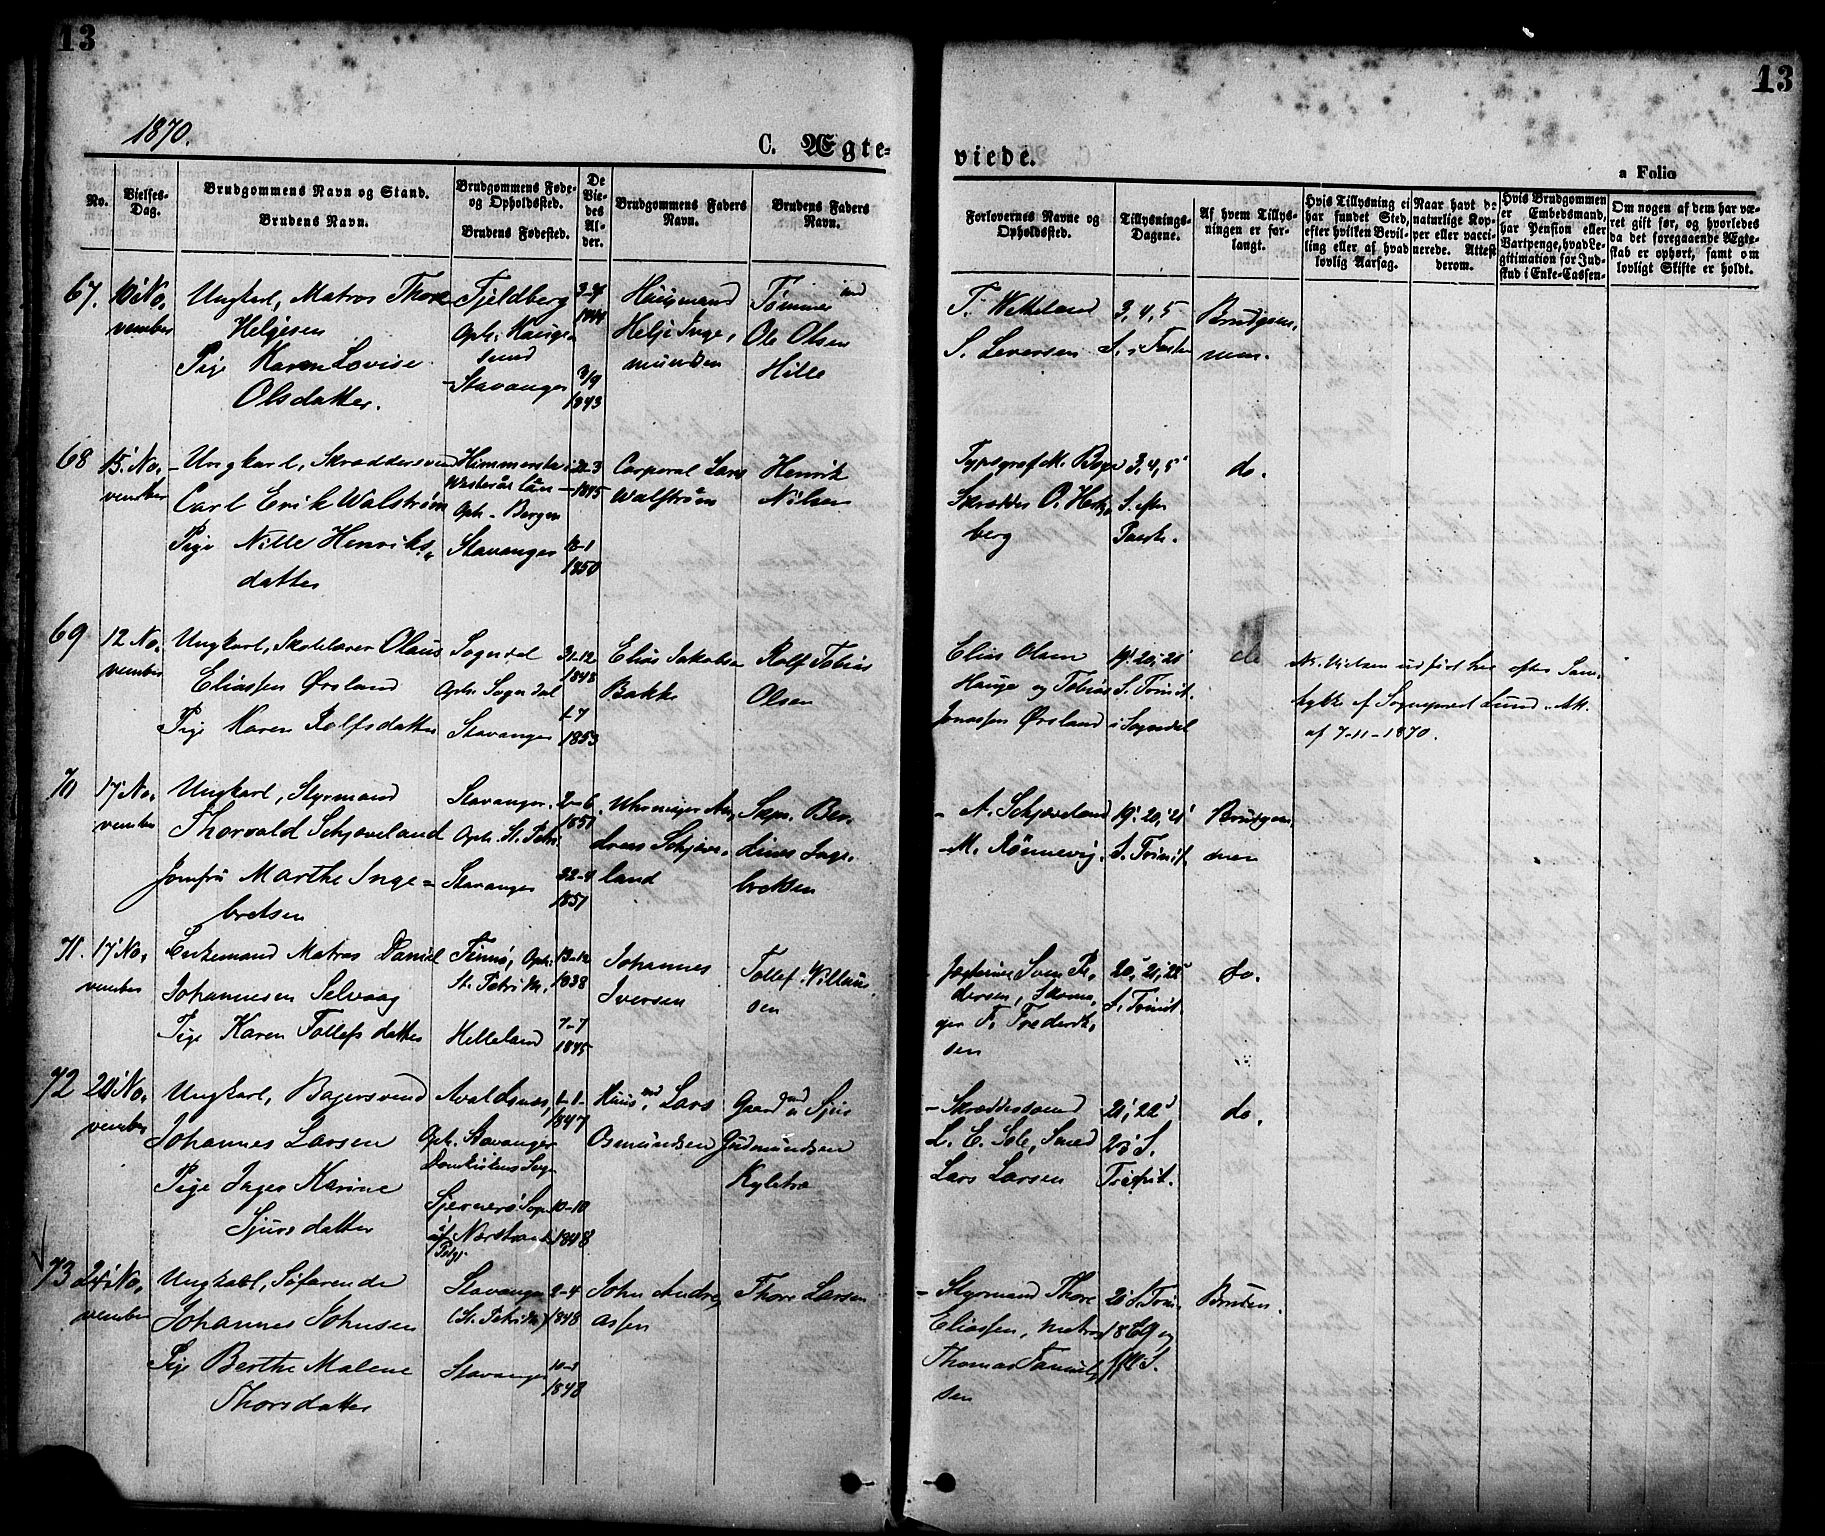 13
13
1870.
C. Ægte-
viede.
a Folio
No.
Vielses-
Dag.
Brudgommens Navn og Stand.
Brudens Navn.
Brudgommens Føde-
og Opholdssted.
Brudens Fødested.
De
Vie-
des
Al-
der.
Brudgommens Faders
Navn.
Brudens Faders
Navn.
Forlovernes Navne og
Opholdssted.
Tillysnings-
Dagene.
Af hvem Tillys-
ningen er for-
langt.
Hvis Tillysning ei
har fundet Sted,
efter hvilken Bevil-
ling eller af hvad
lovlig Aarsag.
Naar havt de
naturlige Kop-
per eller vacci-
nerede. Attest
derom.
Hvis Brudgommen
er Embedsmand,
har Pension eller
Vartpenge, hvad Le-
gitimation for Ind-
skud i Enke-Cassen-
Om nogen af dem har væ-
ret gift før, og hvorledes
da det foregaaende Ægte-
skab er ophørt, samt om
lovligt Skifte er holdt.
67.
10' No-
vember
Ungkarl, Matros Thore
Helgesen
Pige Karen Lovise
Olsdatter.
Fjeldberg
Oph: Hauge-
sund
Stavanger
3/9
1843
Huusmand
Helje Inge-
mundsen
Tømmermd
Ole Olsen
Hille
T. Wetteland
S. Leversen
3, 4, 5
S. i Faste
Brudgom-
men.
68
15' No-
vember
Ungkarl, Skræddersvend
Carl Erik Walstrøm
Pige Nille Henriks-
datter
Himmersta i
Westerås län
Oph. Bergen
Stavanger
21-3
1845
18-1
1850
Corporal Lars
Walstrøm
Henrik
Nilsen
Typograf M. Boye
Skrædder O. Hertz-
berg
3, 4, 5'
S. efter
Paask.
do.
69
12 No-
vember
Ungkarl, Skolelærer Olaus
Eliassen Ørsland
Pige Karen Rolfsdatter
Sogndal
Oph: Sogndal
Stavanger
31-12
1848
1-7
1853
Elias Jakobsen
Bakke
Rolf Tobias
Olsen
Elias Olsen
Hauge og Tobias
Jonassen Ørsland
19' 20, 21'
S. Trinit.
i Sogndal
do
Nb. Vielsen udført her efter Sam-
tykke af Sogneprest Lund. Att.
af 7-11-1870.
70
17' No-
vember
Ungkarl, Styrmand
Thorvald Schjæveland
Jomfru Marthe Inge-
bretsen
Stavanger.
Oph. St. Petri
Stavanger
2-6
1851
22-4
1851
Uhrmager An-
dreas Schjæve-
land
Skpr. Ber-
dines Inge-
bretsen
A. Schjæveland
M. Rønnevig.
19' 20, 21'
S. Trinit.
Brudgom-
men
71.
17' No-
vember
Enkemand Matros Daniel
Johannesen Selvaag
Pige Karen Tollefsdatter
Finnø, Oph:
St. Petri M.
Helleland
13-12
1838
7-7
1845
Johannes
Iversen
Tollef Willaus-
sen
Jægteeier Sven Pe-
dersen, Skoma-
ger F. Frederik-
sen
20, 21, 22'
S. Trinit.
do.
72
20' No-
vember
Ungkarl, Bagersvend
Johannes Larsen
Pige Inger Karine
Sjursdatter
Avaldsnæs,
Oph. Stavanger
Domkirkens Sogn
Sjernerø Sogn
af Nærstrands
Præstgj.
1-1-
1847
10-10
1848
Huusmd. Lars
Osmundsen
Gaardmd Sjur
Gudmundsen
Kyletræ
Skræddersvend
L. E. Sele, Smed
Lars Larsen
21, 22'
23' S.
Trinit.
do.
73
24' No-
vember
Ungkarl, Søfarende
Johannes Johnsen
Pige Berthe Malene
Thorsdatter
Stavanger
(St. Petri M)
Stavanger
2-4
1848
10-3
1848
John Andre-
assen
Thore Larsen
Styrmand Thore
Eliassen, Matros
Thomas Samuel-
sen
21' S. Trin.
1869 og
Bruden.